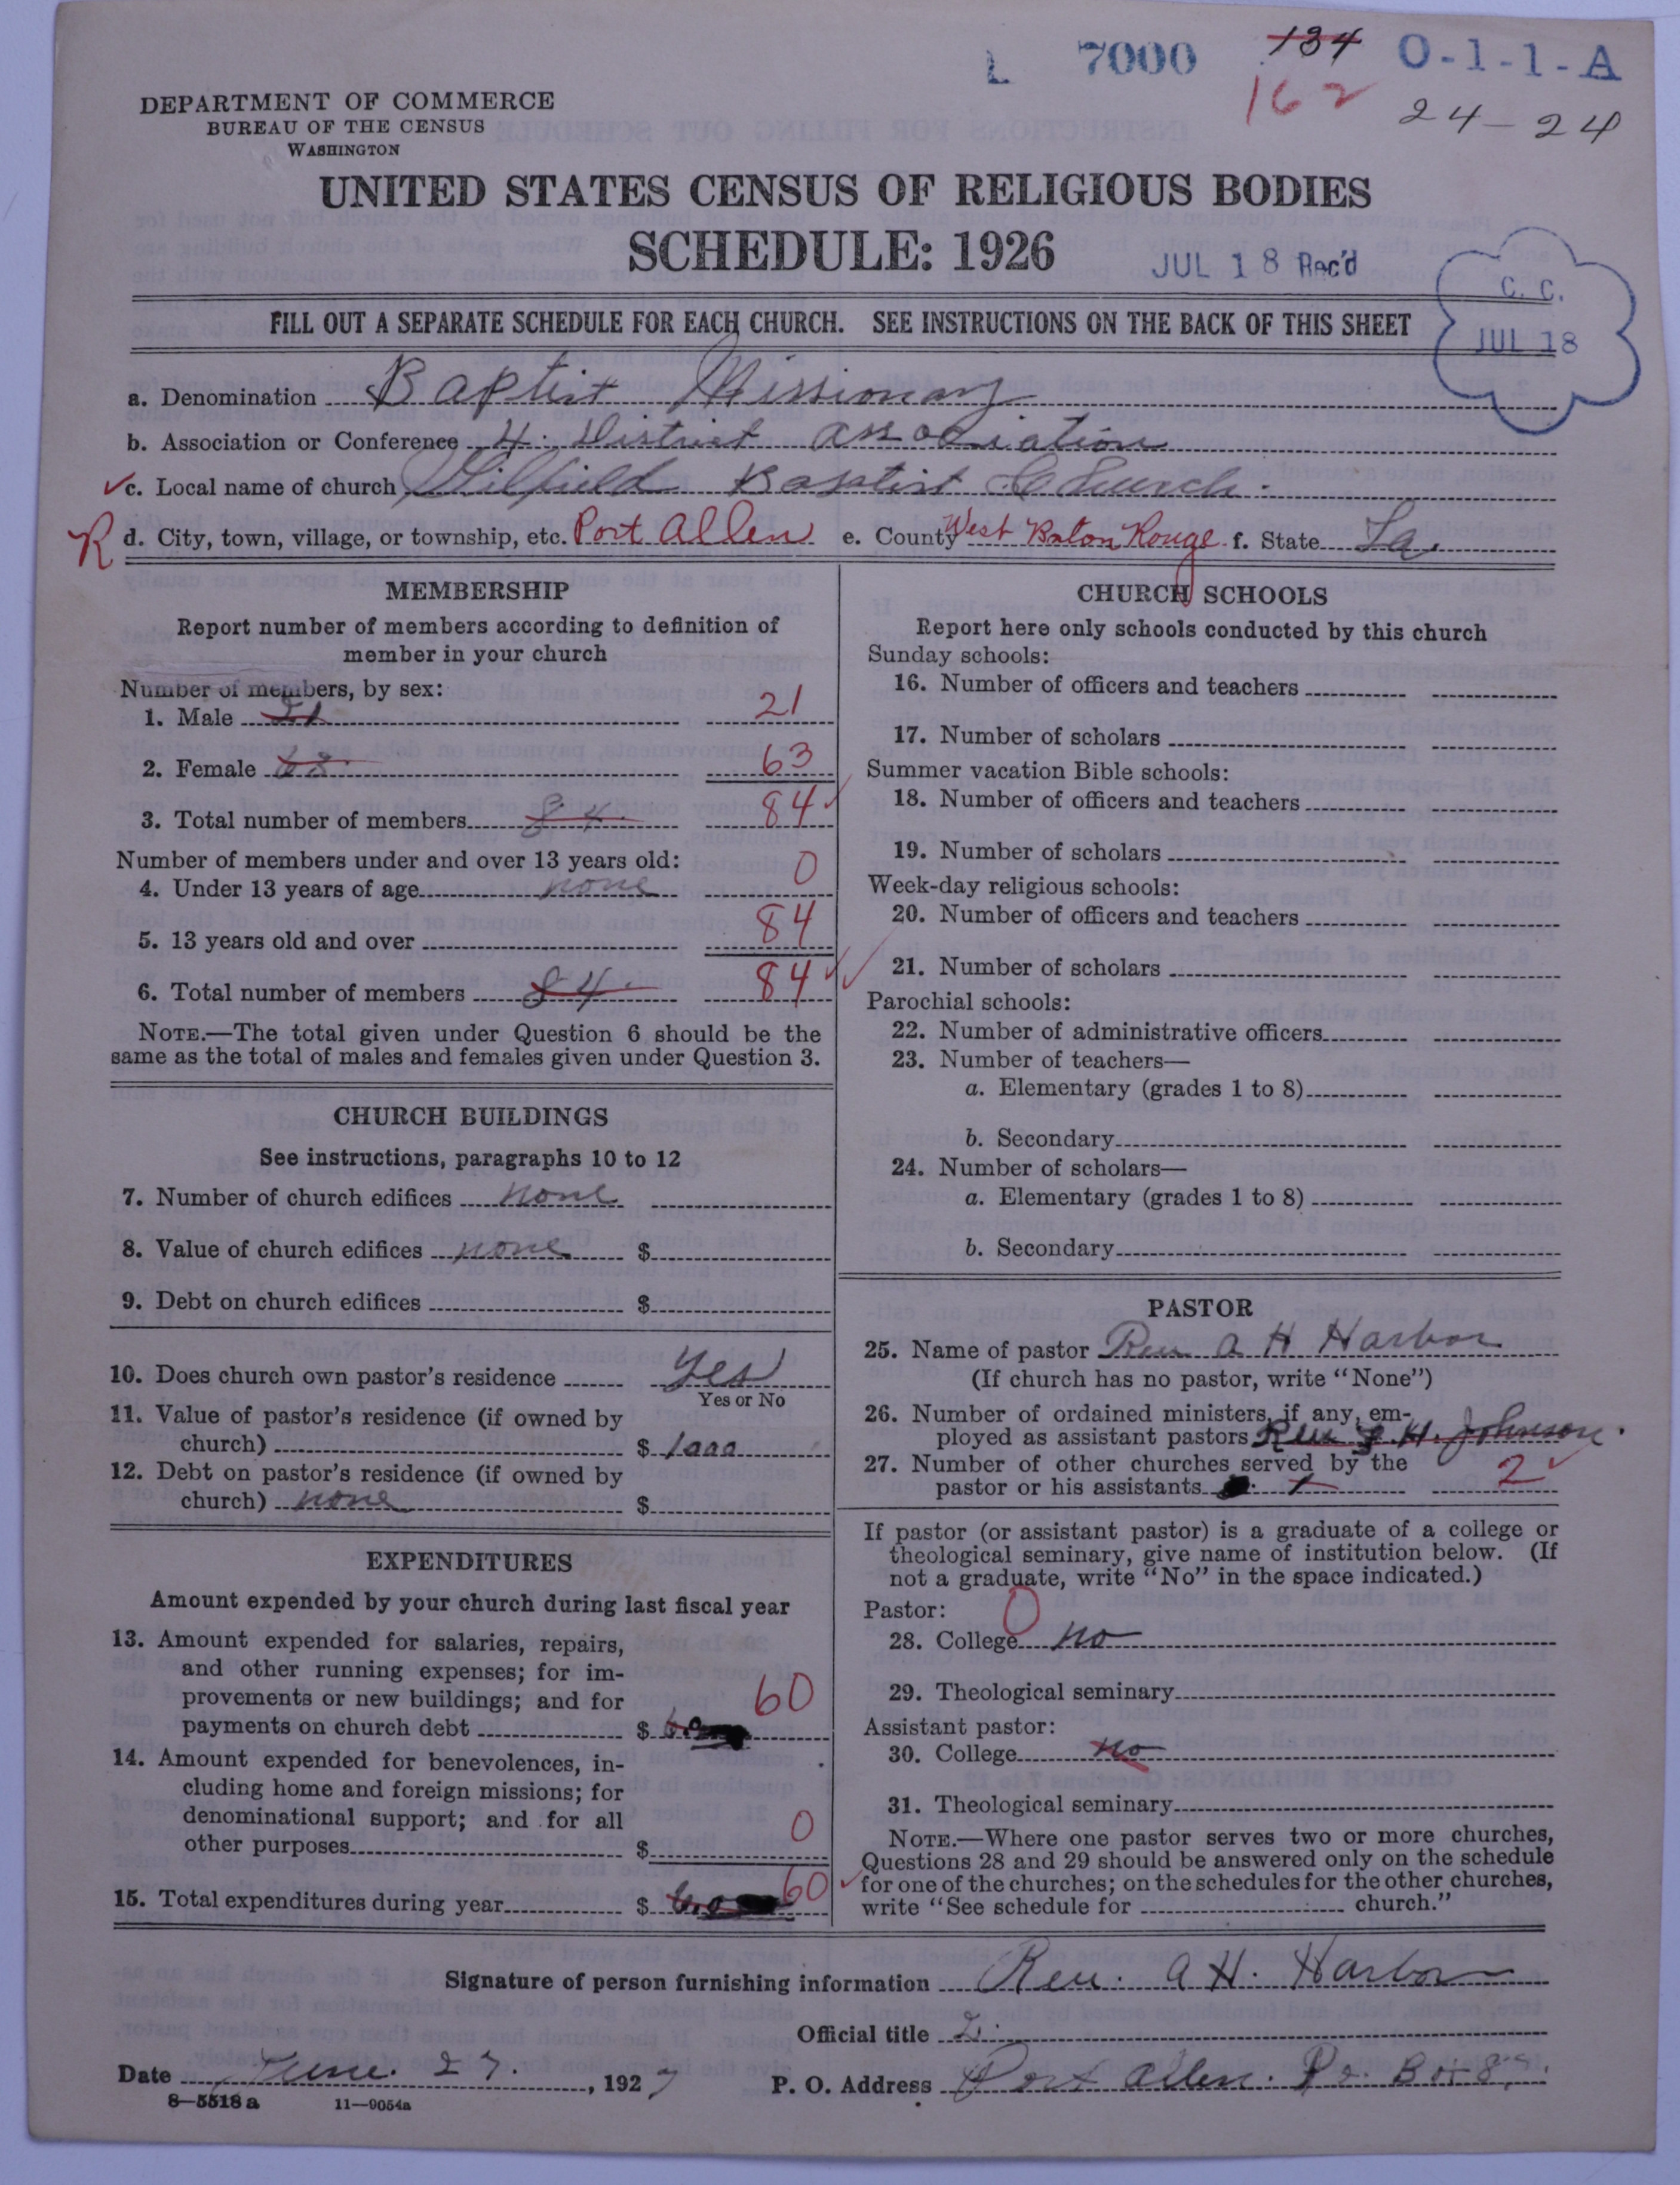 L 7000 134 O-1-1-A
162 24-24
DEPARTMENT OF COMMERCE
BUREAU OF THE CENSUS
WASHINGTON
UNITED STATES CENSUS OF RELIGIOUS BODIES
SCHEDULE: 1926
JUL 18 Rec'd
C. C.
JUL 18
FILL OUT A SEPARATE SCHEDULE FOR EACH CHURCH. SEE INSTRUCTIONS ON THE BACK OF THIS SHEET
a. Denomination Baptist Missionary
b. Association or Conference 4. District association
c. Local name of church Baptist Church.
R d. City, town, village, or township, etc. Port Allen e. County West Baton Rouge f. State La.
MEMBERSHIP
Report number of members according to definition of
member in your church
Number of members, by sex:
1. Male 21 21
2. Female 63 63
3. Total number of members 84 84
Number of members under and over 13 years old:
4. Under 13 years of age none 0
5. 13 years old and over 84
6. Total number of members 84 84
NOTE.—The total given under Question 6 should be the
same as the total of males and females given under Question 3.
CHURCH BUILDINGS
See instructions, paragraphs 10 to 12
7. Number of church edifices none
8. Value of church edifices none $
9. Debt on church edifices $
10. Does church own pastor's residence Yes
Yes or No
11. Value of pastor's residence (if owned by
church) $ 1000
12. Debt on pastor's residence (if owned by
church) none $
EXPENDITURES
Amount expended by your church during last fiscal year
13. Amount expended for salaries, repairs,
and other running expenses; for im-
provements or new buildings; and for
payments on church debt $ 60
14. Amount expended for benevolences, in-
cluding home and foreign missions; for
denominational support; and for all
other purposes $ 0
15. Total expenditures during year $ 60
CHURCH SCHOOLS
Report here only schools conducted by this church
Sunday schools:
16. Number of officers and teachers
17. Number of scholars
Summer vacation Bible schools:
18. Number of officers and teachers
19. Number of scholars
Week-day religious schools:
20. Number of officers and teachers
21. Number of scholars
Parochial schools:
22. Number of administrative officers
23. Number of teachers—
a. Elementary (grades 1 to 8)
b. Secondary
24. Number of scholars—
a. Elementary (grades 1 to 8)
b. Secondary
PASTOR
25. Name of pastor Rev A H Harbor
(If church has no pastor, write "None")
26. Number of ordained ministers, if any, em-
ployed as assistant pastors Rev H. Johnson.
27. Number of other churches served by the
pastor or his assistants 1 2
If pastor (or assistant pastor) is a graduate of a college or
theological seminary, give name of institution below. (If
not a graduate, write "No" in the space indicated.)
Pastor: 0
28. College no
29. Theological seminary
Assistant pastor:
30. College no
31. Theological seminary
NOTE.—Where one pastor serves two or more churches,
Questions 28 and 29 should be answered only on the schedule
for one of the churches; on the schedules for the other churches,
write "See schedule for church."
Signature of person furnishing information Rev. A H. Harbor
Official title
Date June. 27. , 1927 P. O. Address Port Allen. Po. Box
8—5518 a 11—9054a